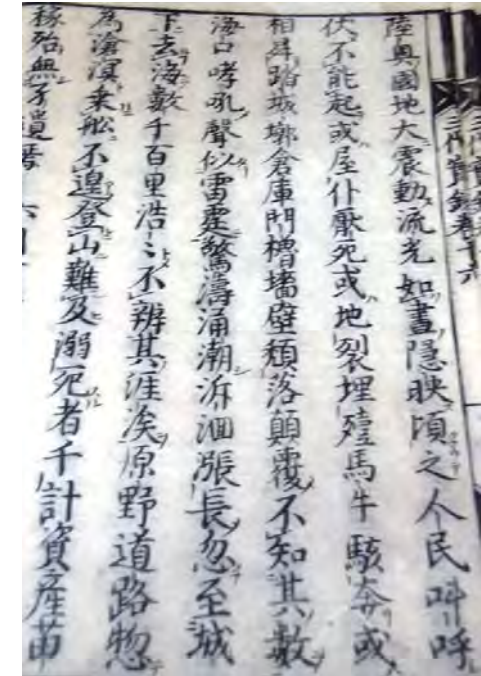 陸奥國地大震動流光如晝隱映頃之人民叫呼
伏不能起或屋仆壓死或地裂埋殪馬牛駭奔或
相昇踏城墎倉庫門櫓墻壁頽落顛覆不知其數
海口哮吼聲似雷霆驚濤涌潮泝洄漲長忽至城
下去海數千百里浩〻不辨其涯涘原野道路惣
為滄溟乗舩不遑登山難及溺死者千計資産苗
稼殆無孑遺焉